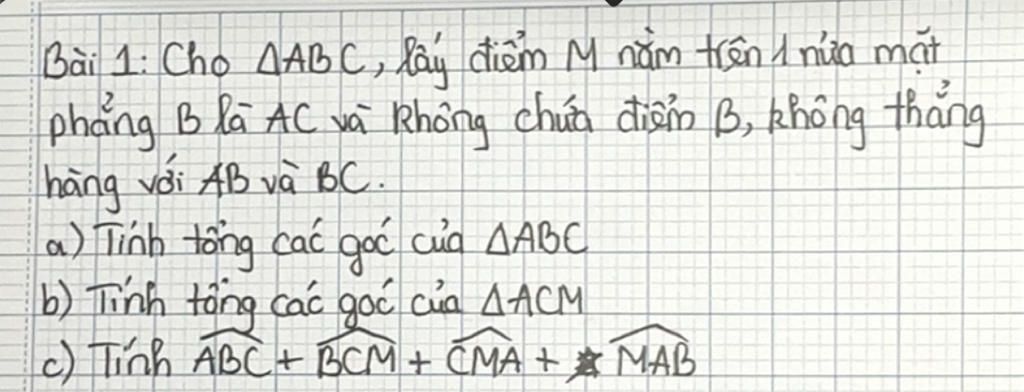 Bài 1: Cho ΔABC, lấy điểm M nằm trên 1 nửa mặt
phẳng B là AC và không chứa điểm B, không thẳng
hàng với AB và BC.
a) Tính tổng các góc của ΔABC
b) Tính tổng các góc của ΔACM
c) Tính \widehat{ABC} + \widehat{BCM} + \widehat{CMA} + \widehat{MAB}